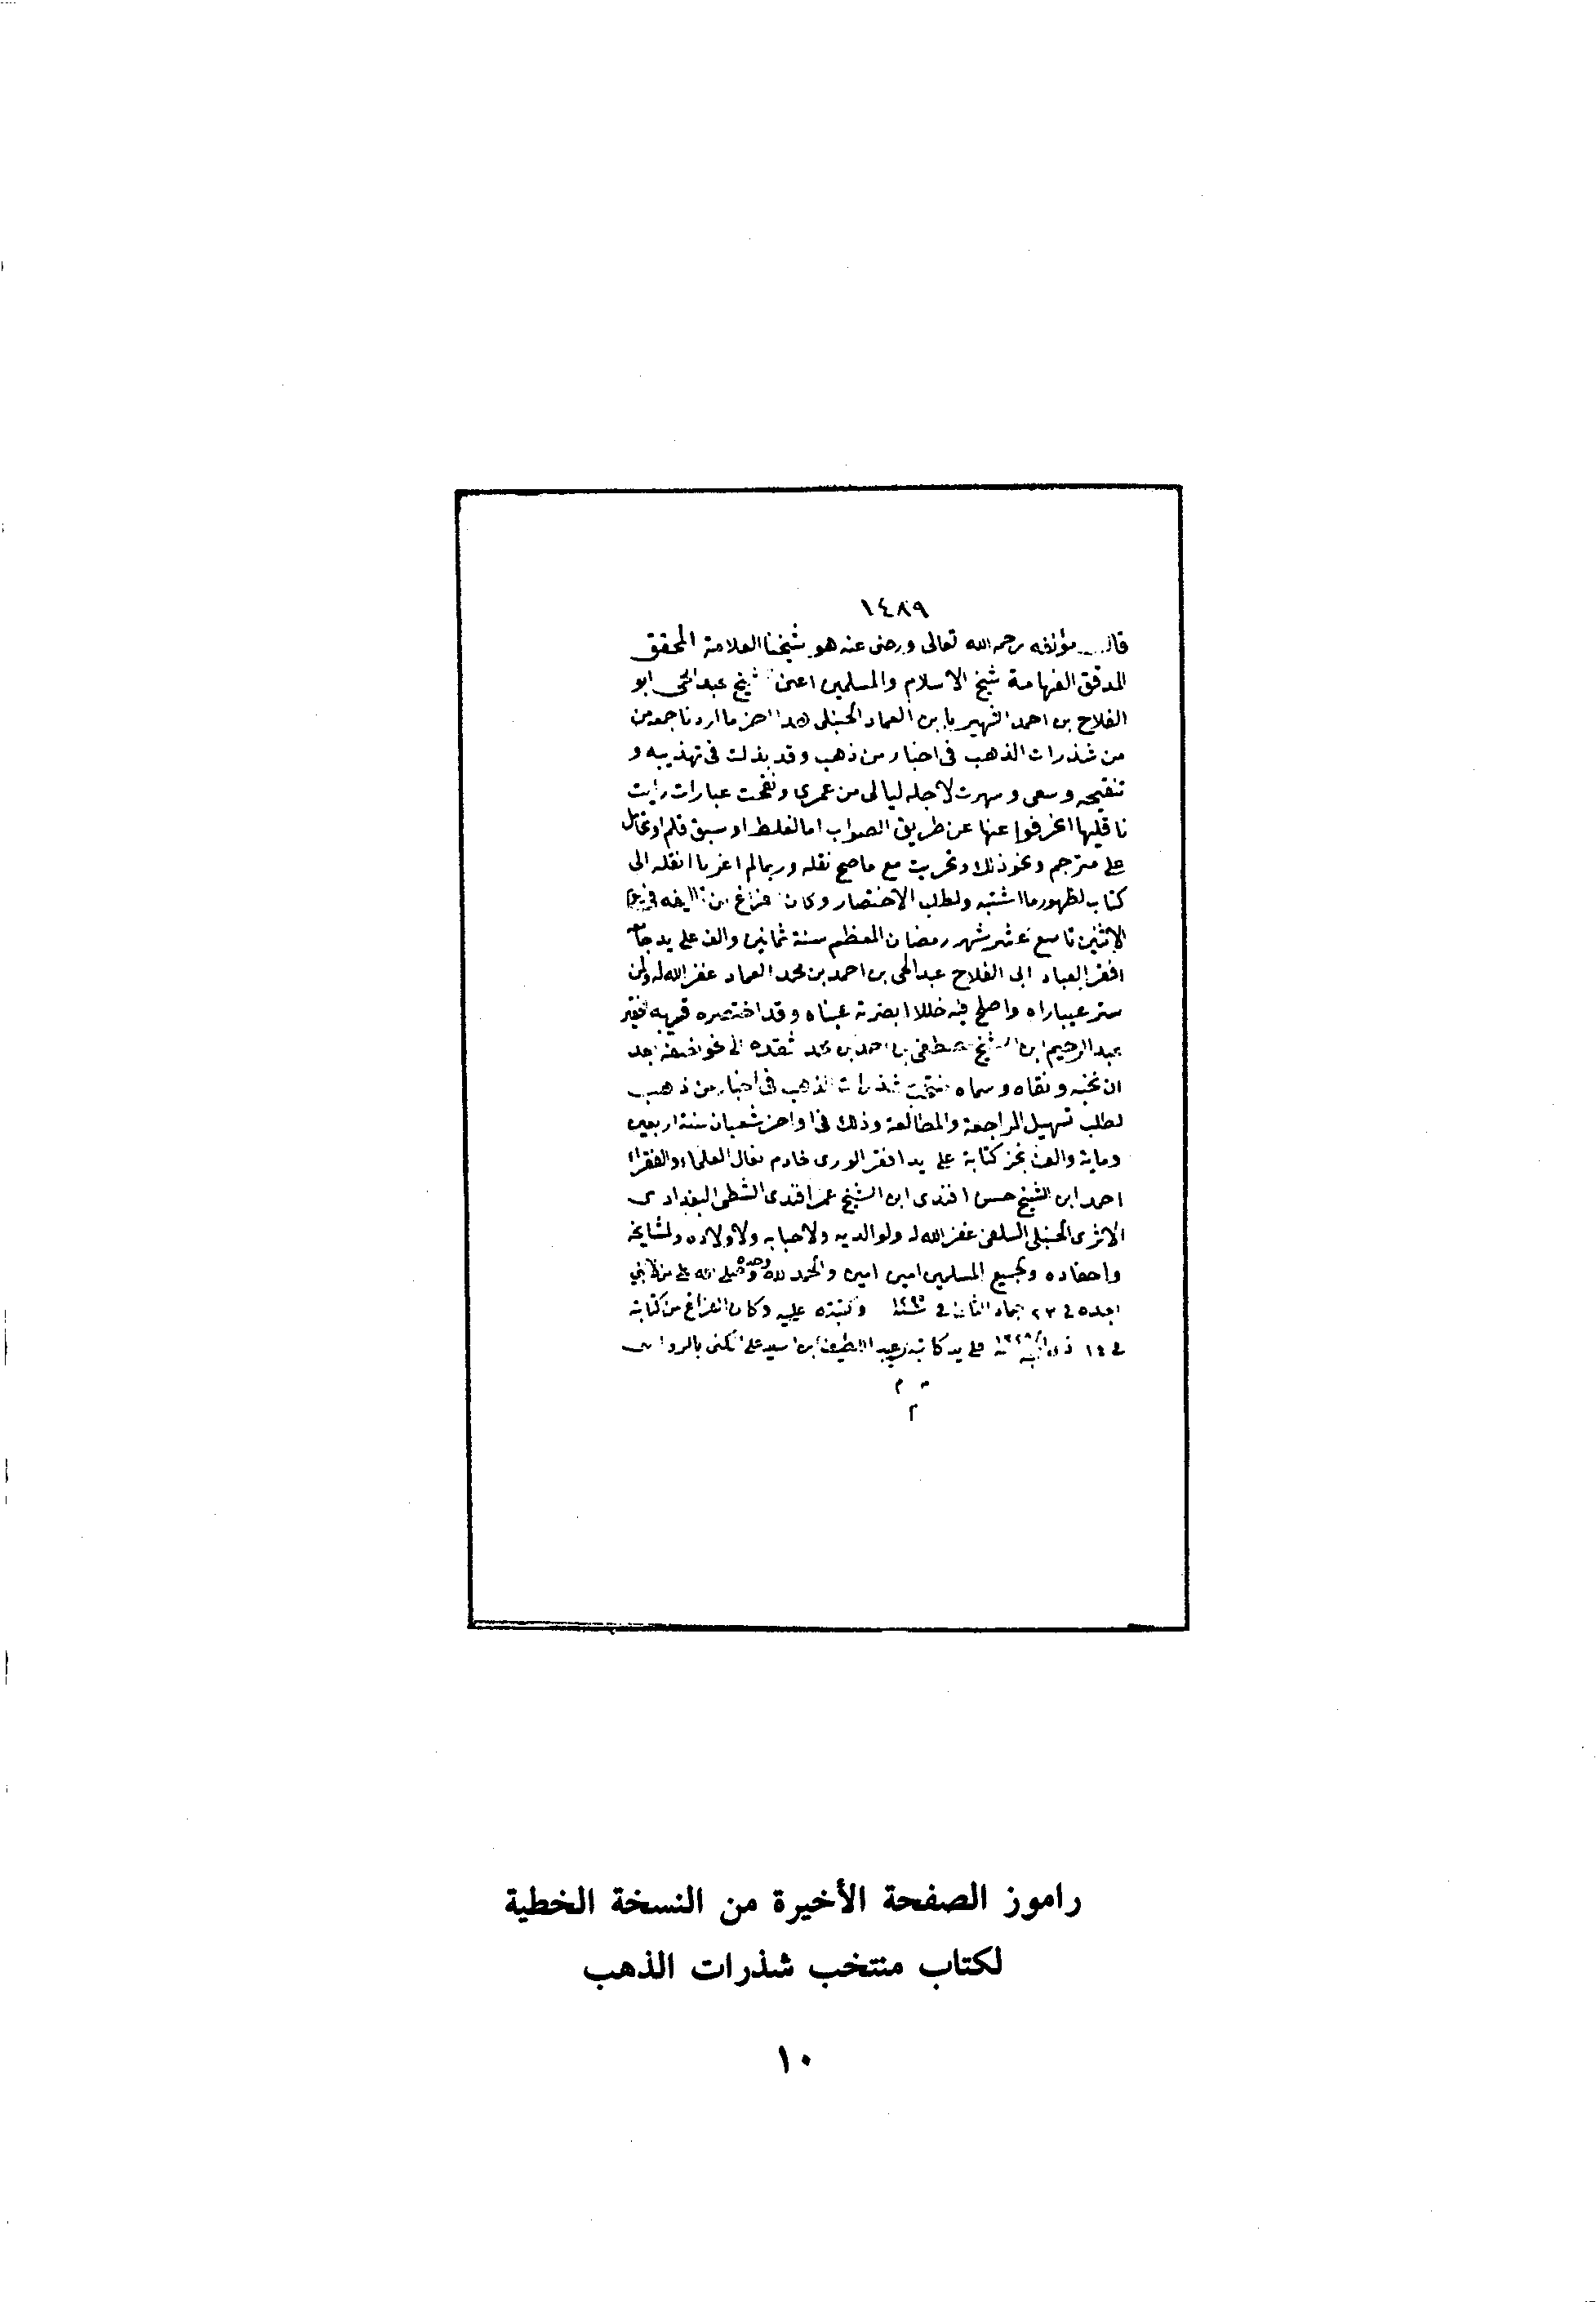 ١٤٨٩
قال مؤلفه رحمه الله تعالى ورضى عنه هو شيخنا العلامة المحقق
المدقق الفهامة شيخ الاسلام والمسلمين اعنى الشيخ عبد الحى ابو
الفلاح بن احمد الشهير بابن العماد الحنبلى هذا اخر ما اردنا جمعه من
من شذرات الذهب فى اخبار من ذهب وقد بذلت فى تهذيبه و
تنقيحه وسعى وسهرت لاجله ليالى من عمرى ونقحت عبارات رايت
ناقليها انحرفوا عنها عن طريق الصواب اما لغلط او سبق قلم او تحامل
على مترجم ونحو ذلك وتحريت مع ما صح نقله وربما لم اعز ما انقله الى
كتاب لظهور ما اشتبه ولطلب الاختصار وكان فراغ من تاليفه فى يوم
الاثنين تاسع عشر شهر رمضان المعظم سنة ثمانين والف على يد جامعه
افقر العباد ابى الفلاح عبد الحى بن احمد بن محمد العماد غفر الله له ولمن
ستر عيبا راه واصلح فيه خللا ابصرته عيناه وقد اختصره فقير
عبد الرحيم ابن الشيخ مصطفى بن احمد بن محمد
ان نخبه ونقاه وسماه منتخب شذرات الذهب فى اخبار من ذهب
لطلب تسهيل المراجعة والمطالعة وذلك فى اواخر شعبان سنة اربعين
وماية والف نجز كتابة على يد افقر الورى خادم نعال العلماء والفقراء
احمد ابن الشيخ حسن افندى ابن الشيخ عمر افندى الشطى البغدادى
الاثرى الحنبلى السلفى غفر الله له ولوالديه ولاحبابه ولاولاده ولمشايخه
واحفاده ولجميع المسلمين امين امين والحمد لله وحده وصلى الله على من لا نبي
بعده فى ٢٣ جماد الثانى فى سنة وكان الفراغ من كتابته
فى ١٤ على يد كاتبه عبد اللطيف ابن السيد على
م م
م
راموز الصفحة الأخيرة من النسخة الخطية
لكتاب منتخب شذرات الذهب
١٠